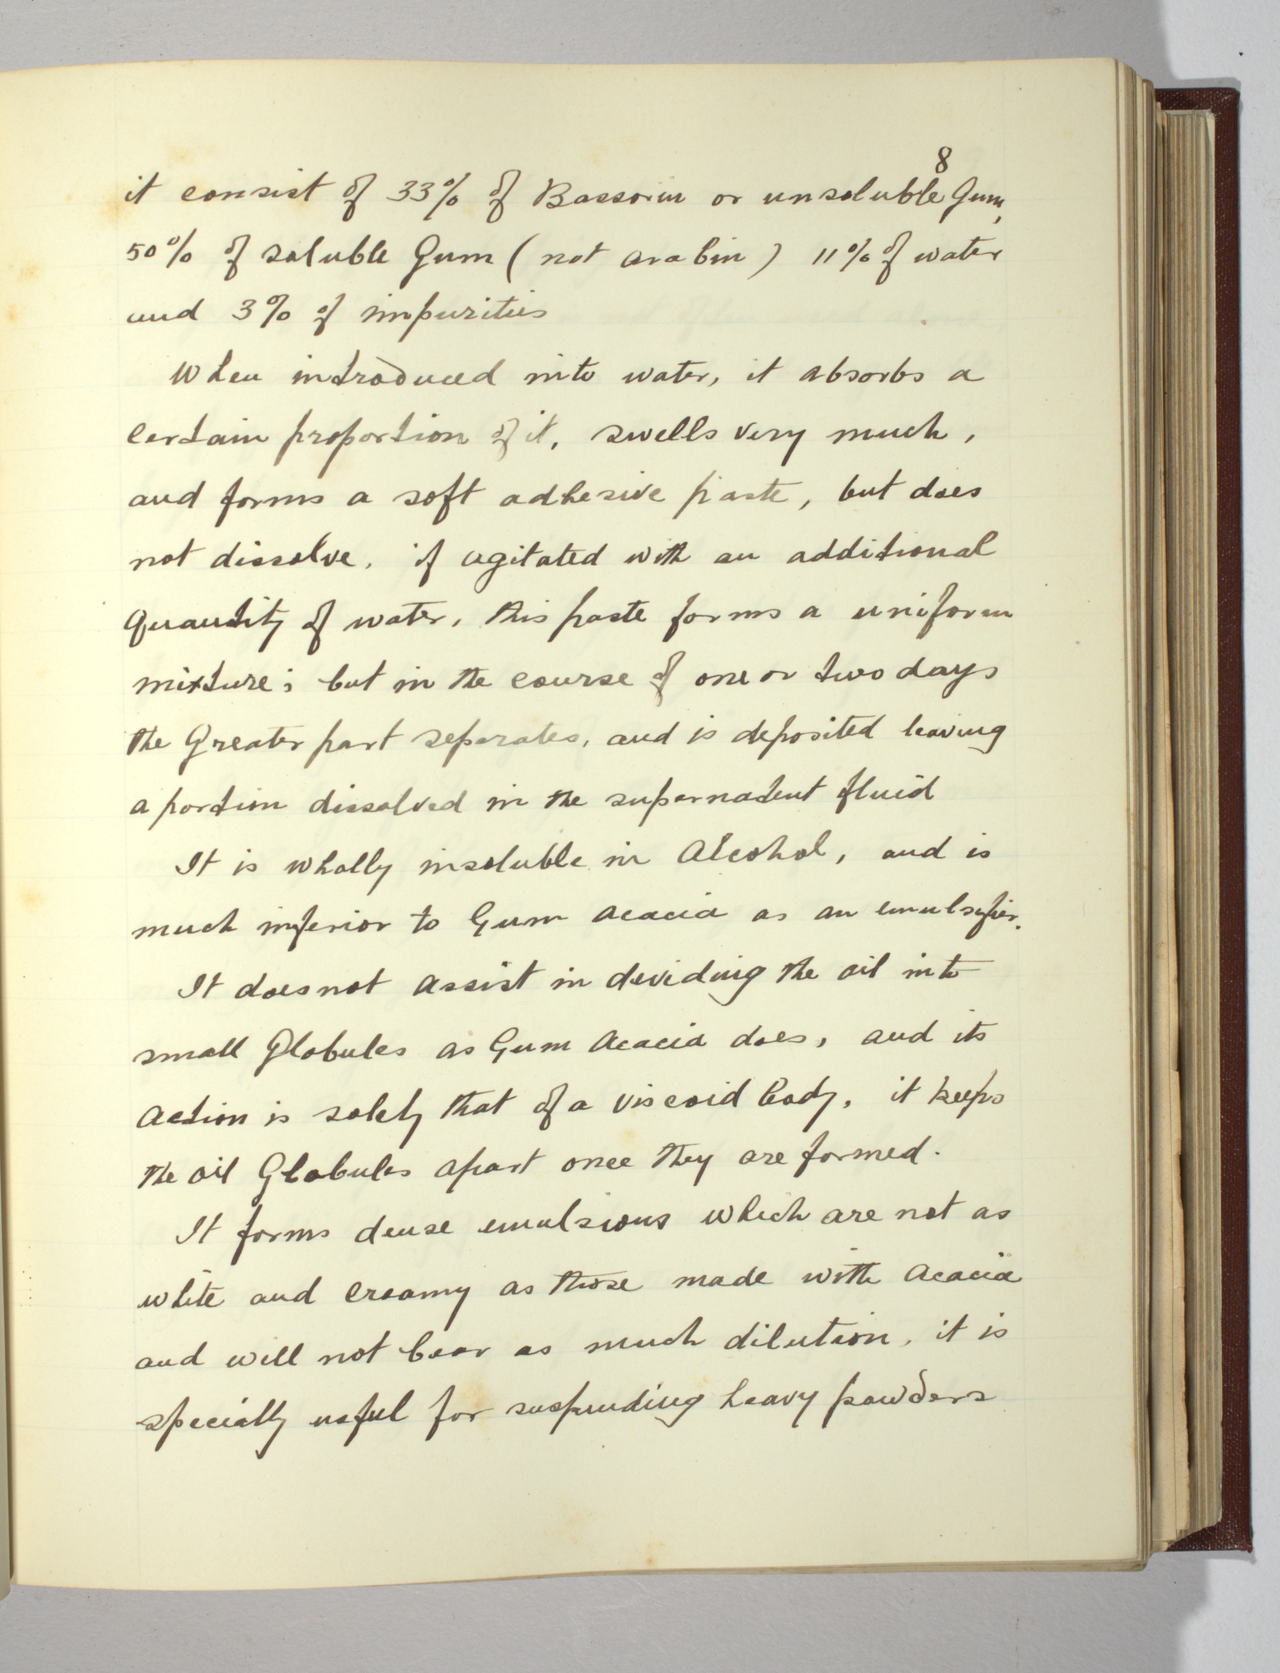 8
it consist of 33% of Bassorin or unsoluble Gum,
50% of soluble Gum (not arabin) 11% of water
and 3% of impurities
When introduced into water, it absorbs a
certain proportion of it, swells very much,
and forms a soft adhesive paste, but does
not dissolve. if agitated with an additional
Quantity of water, this paste forms a uniform
mixture; but in the course of one or two days
the Greater part separates, and is deposited leaving
a portion dissolved in the supernatent fluid
It is wholly insoluble in Alcohol, and is
much inferior to Gum Acacia as an emulsifier.
It does not assist in dividing the oil into
small Globules as Gum Acacia does, and its
action is solely that of a viscoid body, it keeps
the oil Globules apart once they are formed.
It forms dense emulsions which are not as
white and creamy as those made with Acacia
and will not bear as much dilution, it is
specially useful for suspending heavy powders